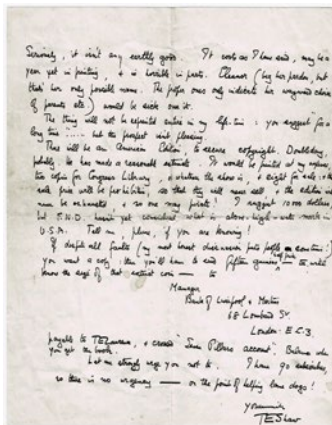 Seriously, it isn't any earthly good. It costs as I have said, may be a
year yet in printing, & is horrible in parts. Eleanor (beg her pardon, but
that's her only possible name. The prefix ones only indicate her
of parents etc) would be sick over it.
The thing will not be reprinted entire in my life-time: you suggest 'for a
long time' .... but the prospect isn't pleasing.
There will be an American Edition, to secure copyright. Doubleday,
probably. He has made a reasonable estimate. It would be printed at my expense,
two copies for Congress Library, & whatever the above is, & eight for sale: & the
sale price will be prohibitive, so that they will never sell, & the edition will
never be exhausted, & no one may pirate! I suggest 10000 dollars,
but F.N.D. hasn't yet considered what is above-high-water mark in
U.S.A. Tell me, please, if you are knowing!
If despite all faults (my most honest discussion puts people
you want a copy: then you'll have to send fifteen guineas
know the age of that extinct coin — to
Manager
Bank of Liverpool & Martins
68 Lombard St.
London. E.C.3.
payable to TELawrence, & crossed "Seven Pillars account". Balance when
you get the book.
Let me strongly urge you not to. I have 90 subscribers,
so there is no urgency — on the point of helping lame dogs!
Yours
TEShaw